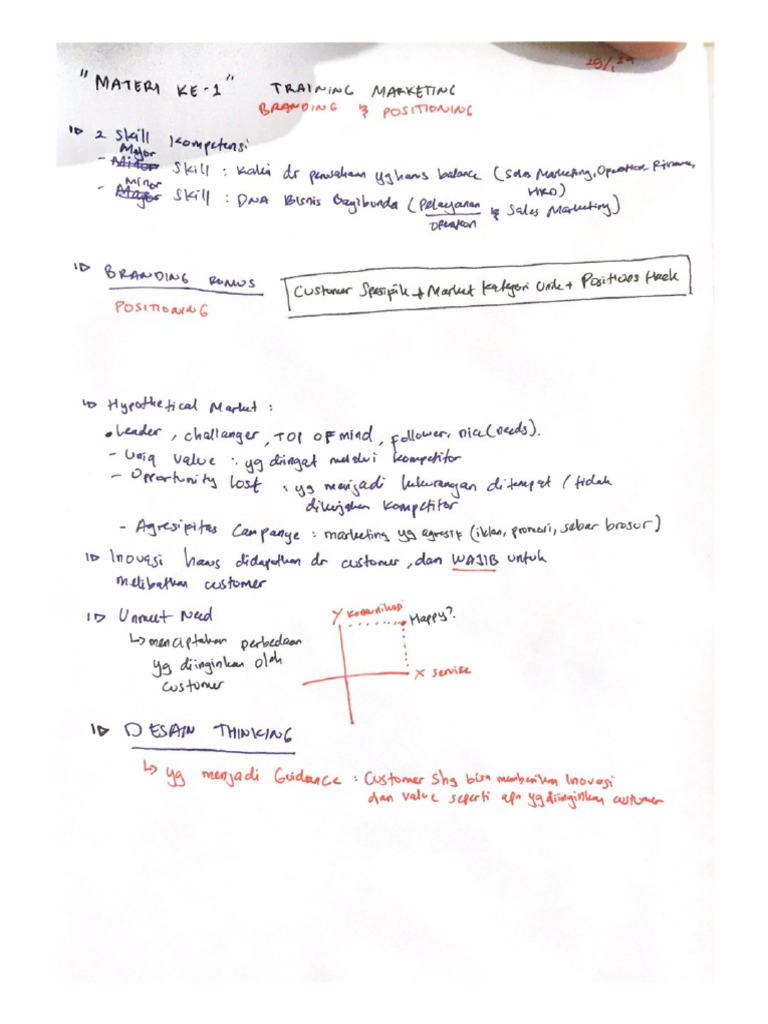 "MATERI KE-1" TRAINING MARKETING
BRANDING & POSITIONING
2 Skill Kompetensi
Major
- Minor Skill : Kaki dr perusahaan yg harus balance (Sales Marketing, Operation, Finance,
HRD)
Minor
- Major Skill : DNA Bisnis Gagibunda (Pelayanan & Sales Marketing)
Operation
BRANDING RUMUS
Customer Spesipik + Market Kategori Unik + Positions Hack
POSITIONING
Hypothetical Market :
• Leader, challanger, TOP OF mind, follower, nice (needs).
- Uniq value : yg diingat melalui kompetitor
- Opportunity lost : yg menjadi kekurangan ditempat / tidak
dikerjakan kompetitor
- Agresipitas Campanye : marketing yg agresif (iklan, promosi, sebar brosur)
Inovasi harus didapatkan dr customer, dan WAJIB untuk
melibatkan customer
Unmeet Need
↳ menciptakan perbedaan
yg diinginkan oleh
customer
Y komunikasi
Happy?
X service
DESAIN THINKING
↳ yg menjadi Guidance : Customer shg bisa memberikan Inovasi
dan value seperti apa yg diinginkan customer